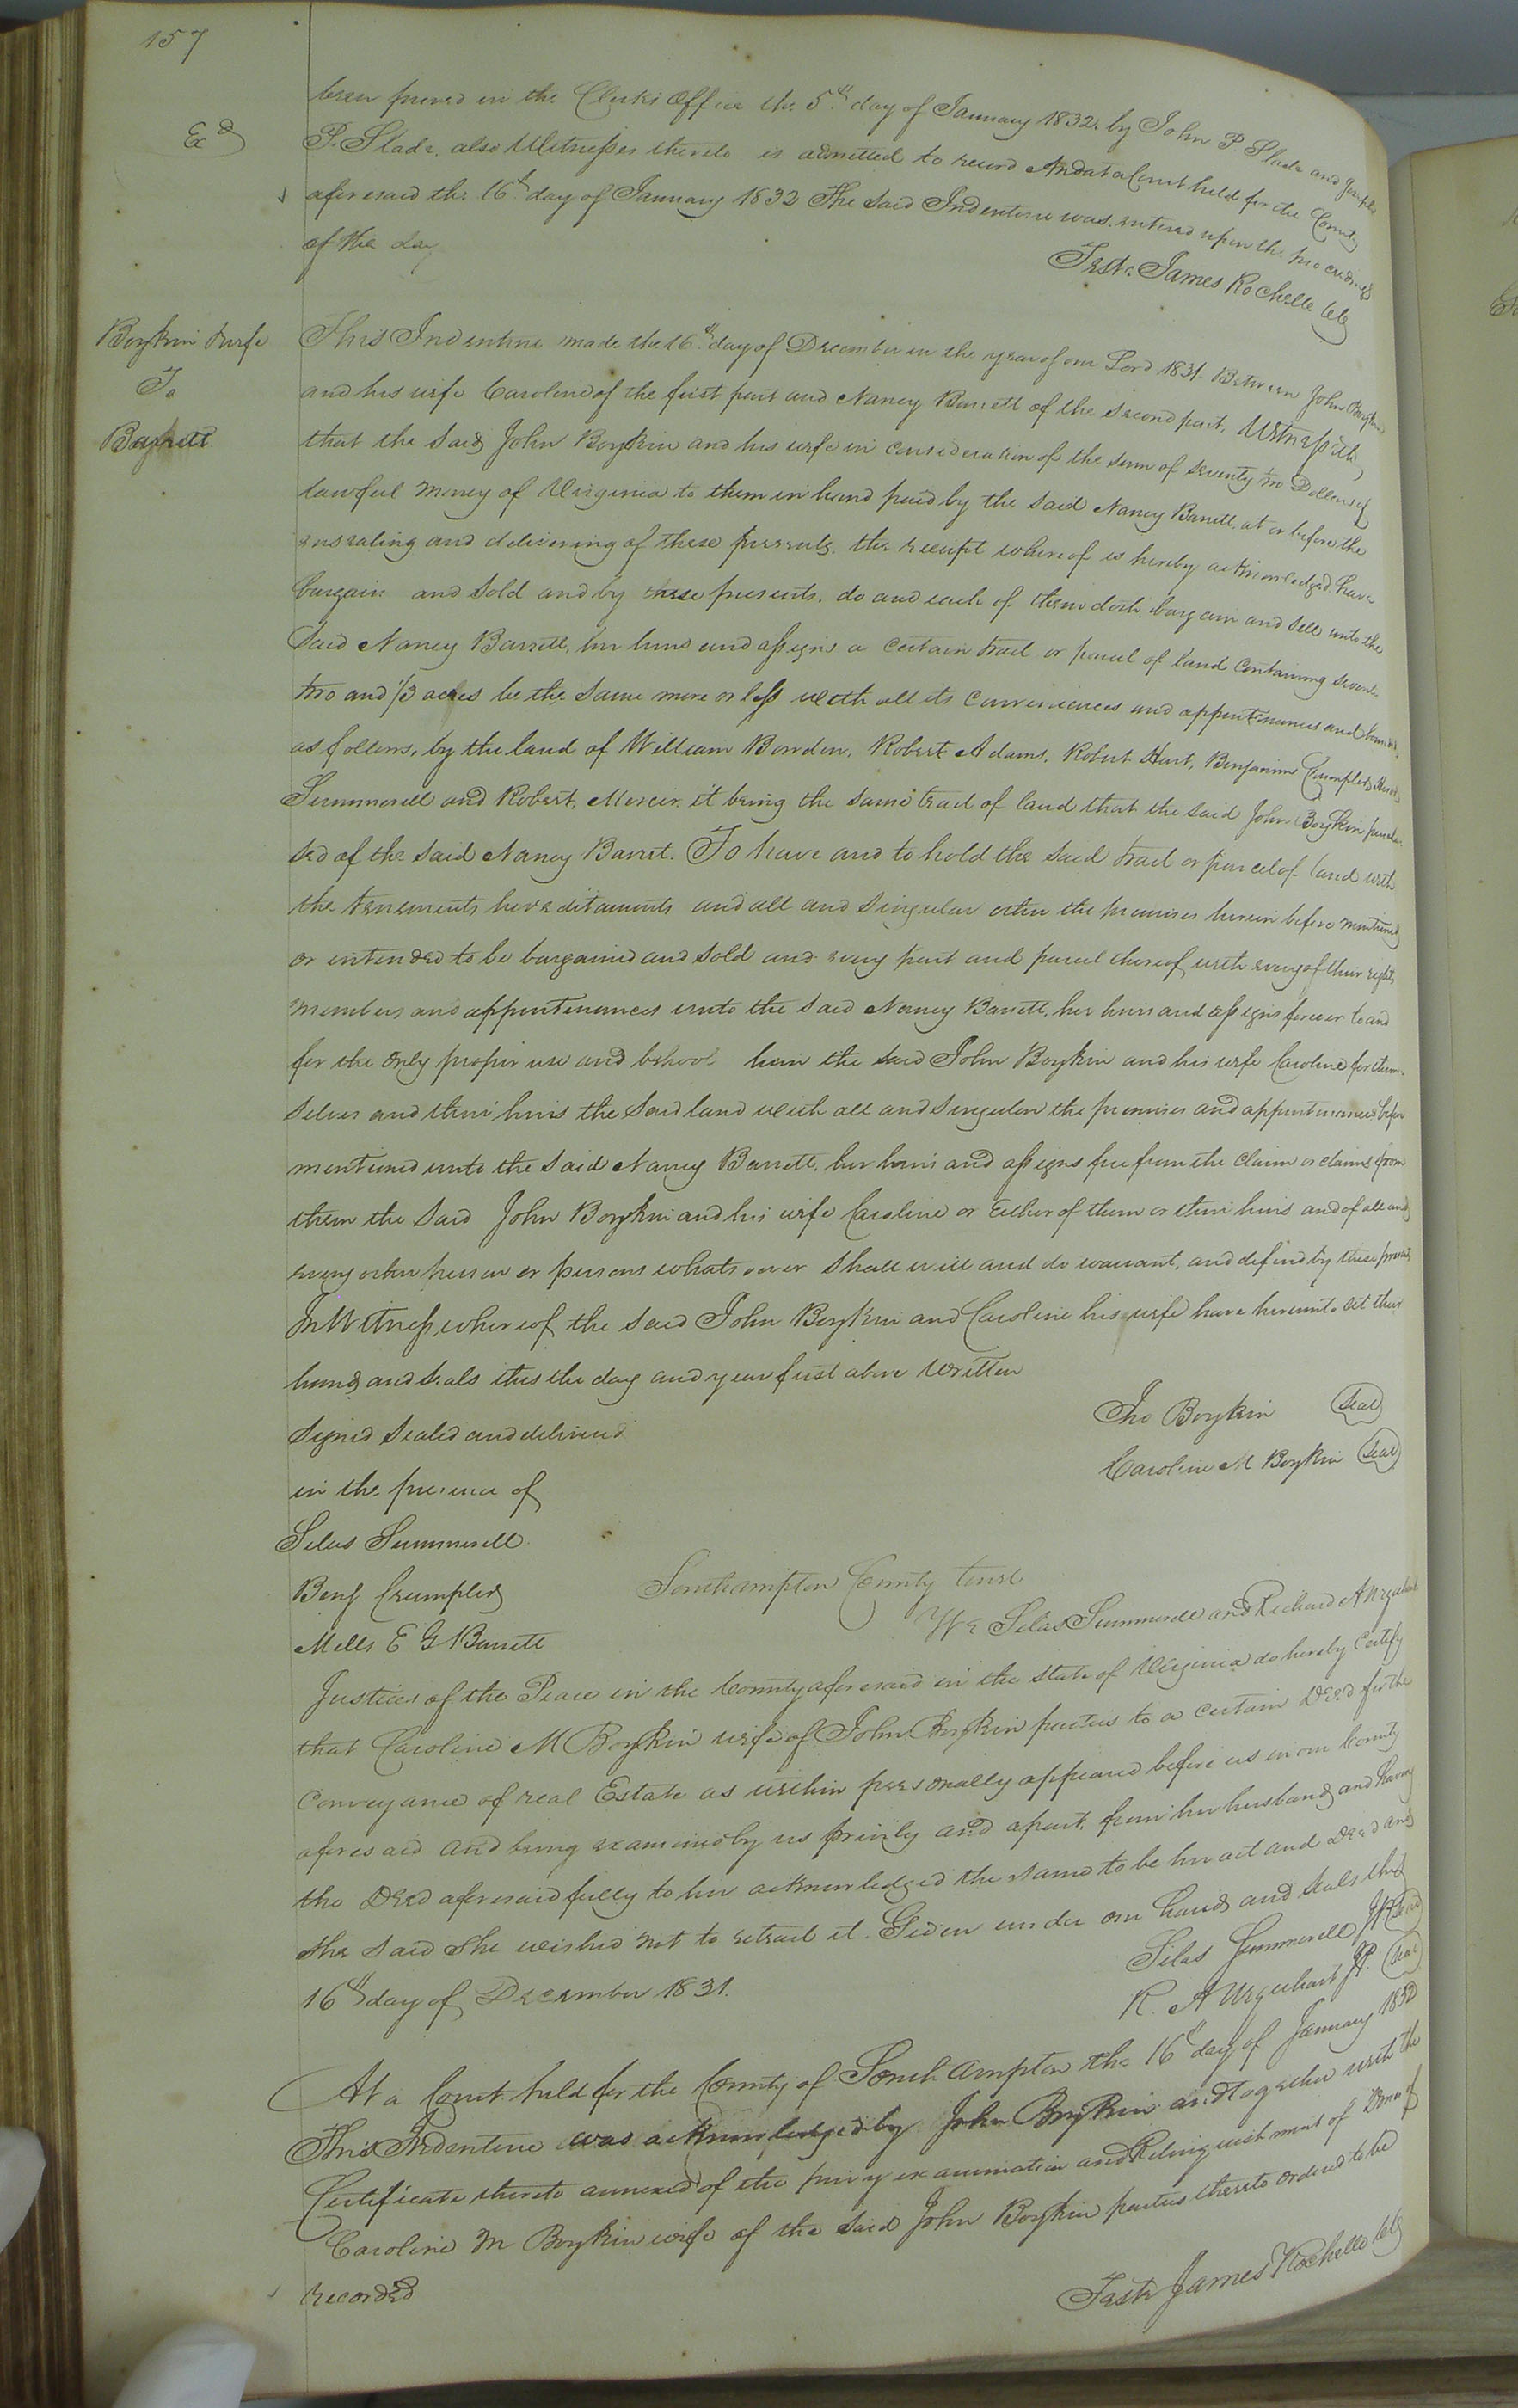 157
been proved in the Clerks Office the 5th day of January 1832 by John P. Slade and Joseph
Exd
P. Slade, also Witnesses thereto is admitted to record And at a Court held for the County
aforesaid the 16th day of January 1832 The said Indenture was entered upon the proceedings
of the day
Teste James Rochelle Clk
Boykin & wife
To
Barrett
This Indenture made the 16th day of December in the year of our Lord 1831 Between John Boykin
and his wife Caroline of the first part and Nancy Barrett of the second part, Witnesseth,
that the said John Boykin and his wife in consideration of the sum of seventy two Dollars of
lawful money of Virginia to them in hand paid by the said Nancy Barrett, at or before the
ensealing and delivering of these presents, the receipt whereof is hereby acknowledged have
bargain and sold and by these presents, do and each of them doth bargain and sell unto the
said Nancy Barrett, her heirs and assigns a certain tract or parcel of land containing seventy
two and 1/3 acres be the same more or less with all its conveniences and appurtenances and bounded
as follows, by the land of William Bowden, Robert Adams, Robert Hart, Benjamin Crumpler,
Summerell and Robert Mercer, it being the same tract of land that the said John Boykin purcha
sed of the said Nancy Barret. To have and to hold the said tract or parcel of land with
the tenements hereditaments and all and singular other the premises herein before mentioned
or intended to be bargained and sold and every part and parcel thereof with every of their rights
members and appurtenances unto the said Nancy Barrett, her heirs and assigns forever to and
for the only proper use and behoof him the said John Boykin and his wife Caroline for them
selves and their heirs the said land with all and singular the premises and appurtenances before
mentioned unto the said Nancy Barrett, her heirs and assigns free from the claim or claims from
them the said John Boykin and his wife Caroline or Either of them or their heirs and of all and
every other person or persons whatsoever shall will and do warrant, and defend by these presents
In Witness whereof the said John Boykin and Caroline his wife have hereunto set their
hands and seals this the day and year first above Written
Signed sealed and delivered
in the presence of
Jno Boykin Seal
Caroline M Boykin Seal
Silas Summerell
Benj Crumpler
Mills E G Barrett
Southampton County towit
We Silas Summerell and Richard A Urquhart
Justices of the Peace in the County aforesaid in the state of Virginia do hereby Certify
that Caroline M Boykin wife of John Boykin parties to a certain Deed for the
Conveyance of real Estate as within personally appeared before us in our County
aforesaid and being examined by us privily and apart from her husband, and having
the Deed aforesaid fully to her acknowledged the same to be her act and Deed and
she said she wished not to retract it. Given under our hands and seals this
16th day of December 1831.
Silas Summerell JP Seal
R. A Urquhart JP. Seal
At a Court held for the County of Southampton the 16th day of January 1832
This Indenture was acknowledged by John Boykin and together with the
Certificate thereto annexed of the privy examination and Relinquishment of Dower of
Caroline M Boykin wife of the said John Boykin parties thereto ordered to be
recorded
Teste James Rochelle Clk